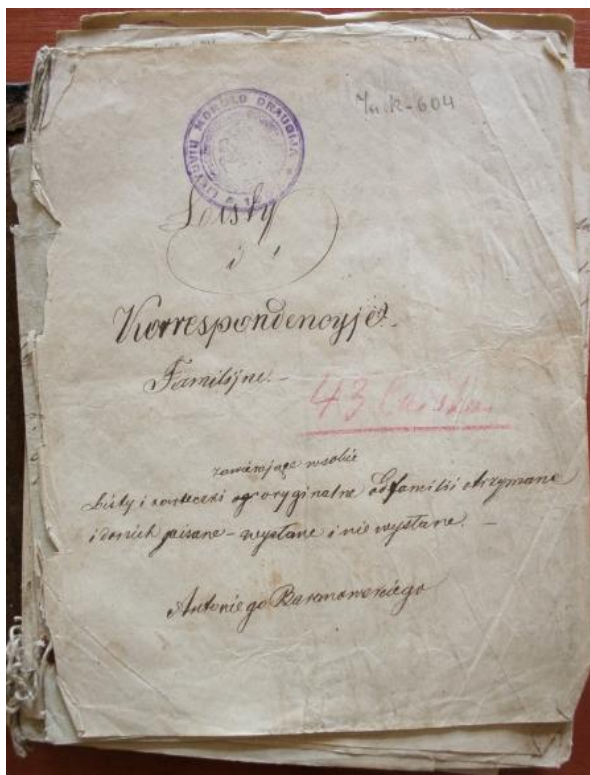 LIETUVIŲ MOKSLO DRAUGIJA
Listy
i
Korrespondencyje
Familijne.
zawierające wsobie
Listy i karteczki oryginalne od familii otrzymane
i donich pisane – wysłane i nie wysłane. –
Antoniego